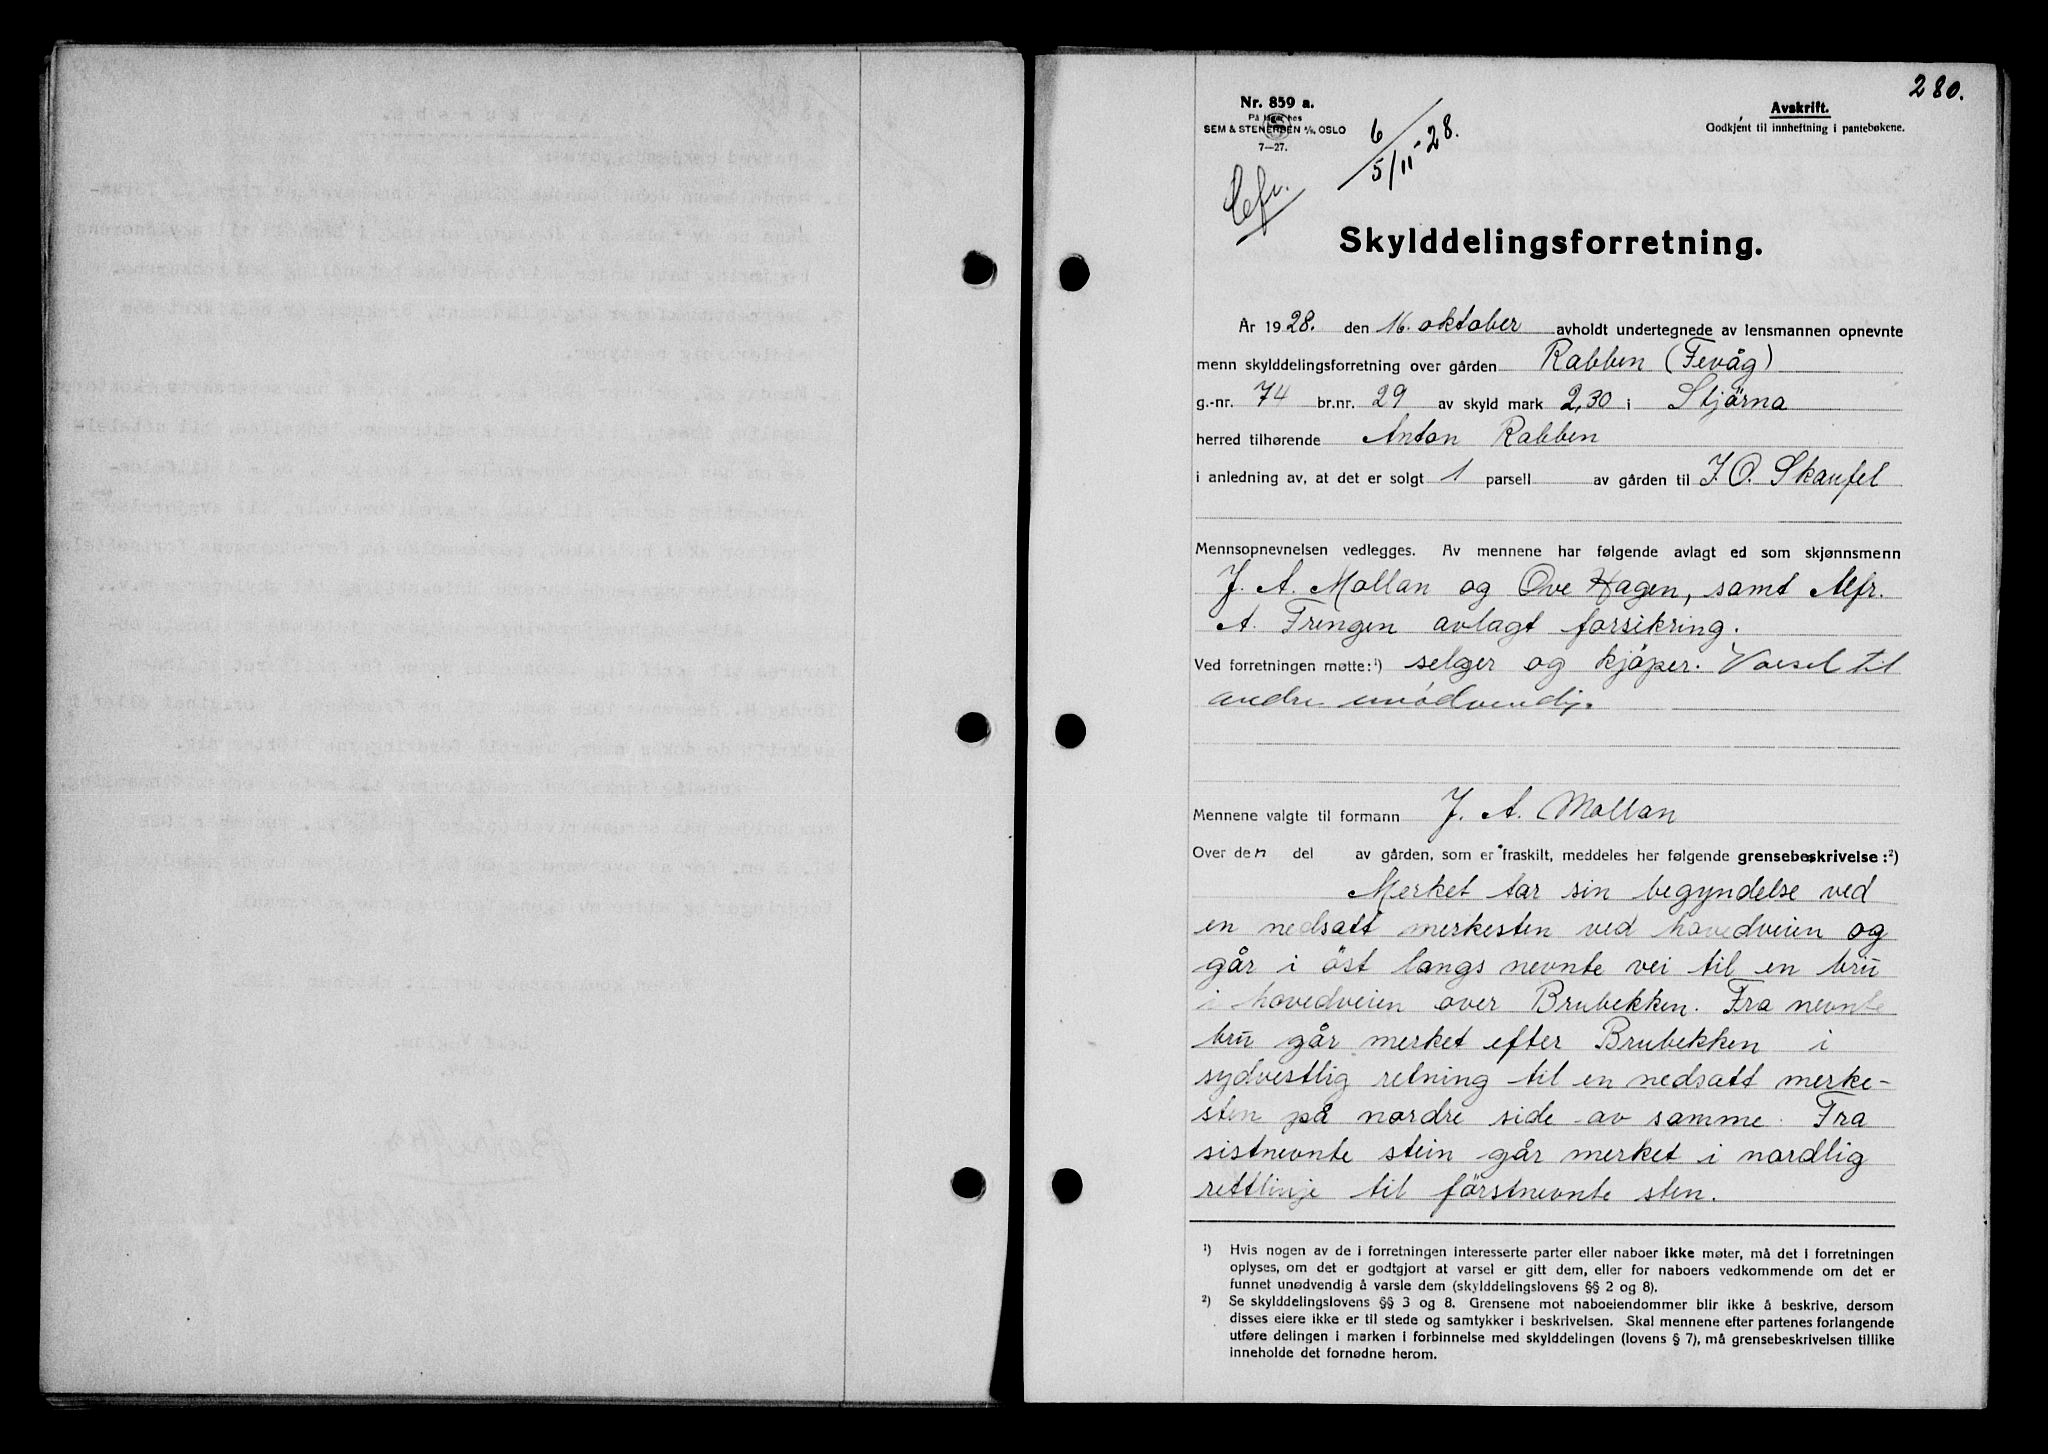 280.
Nr. 859 a.
På lager hos
SEM & STENERSEN A/S, OSLO
7—27.
6/5/11-28.
Avskrift.
Godkjent til innheftning i pantebøkene.
Skylddelingsforretning.
År 1928. den 16. oktober avholdt undertegnede av lensmannen opnevnte
menn skylddelingsforretning over gården Rabben (Fevåg)
g.-nr. 74 br.nr. 29 av skyld mark 2,30 i Stjørna
herred tilhørende Anton Rabben
i anledning av, at det er solgt 1 parsell av gården til J. O. Skaufel
Mennsopnevnelsen vedlegges. Av mennene har følgende avlagt ed som skjønnsmenn
J. A. Mollan og Ove Hagen, samt Alfr.
A. Frengen avlagt forsikring.
Ved forretningen møtte:¹) selger og kjøper. Varsel til
andre unødvendig.
Mennene valgte til formann J. A. Mollan
Over den del av gården, som er fraskilt, meddeles her følgende grensebeskrivelse:²)
Merket tar sin begyndelse ved
en nedsatt merkesten ved hovedveien og
går i öst langs nevnte vei til en bru
i hovedveien over Brubekken. Fra nevnte
bru går merket efter Brubekken i
sydvestlig retning til en nedsatt merke-
sten på nordre side av samme. Fra
sistnevnte stein går merket i nordlig
rettlinje til förstnevnte sten.
¹) Hvis nogen av de i forretningen interesserte parter eller naboer ikke møter, må det i forretningen
oplyses, om det er godtgjort at varsel er gitt dem, eller for naboers vedkommende om det er
funnet unødvendig å varsle dem (skylddelingslovens §§ 2 og 8).
²) Se skylddelingslovens §§ 3 og 8. Grensene mot naboeiendommer blir ikke å beskrive, dersom
disses eiere ikke er til stede og samtykker i beskrivelsen. Skal mennene efter partenes forlangende
utføre delingen i marken i forbinnelse med skylddelingen (lovens § 7), må grensebeskrivelsen tillike
inneholde det fornødne herom.